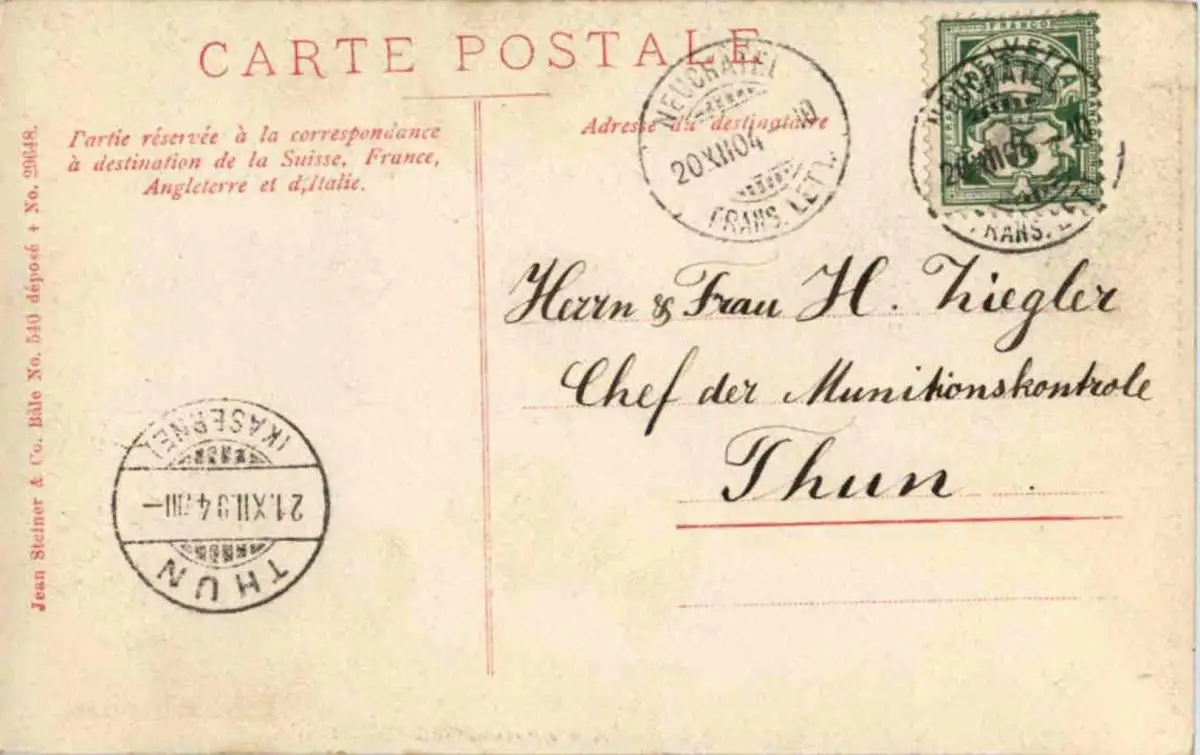 CARTE POSTALE
Partie réservée à la correspondance
à destination de la Suisse, France,
Angleterre et d'Italie.
Adresse du destinataire
NEUCHÂTEL
20.XII.04 - 10
TRANS. LETT.
FRANCO
HELVETIA
NEUCHÂTEL
20.XII.04 - 10
TRANS. LETT.
Herrn & Frau H. Ziegler
Chef der Munitionskontrole
Thun.
THUN
21.XII.04.VIII-
(KASERNE)
Jean Steiner & Co. Bâle No. 540 déposé + No. 20648.